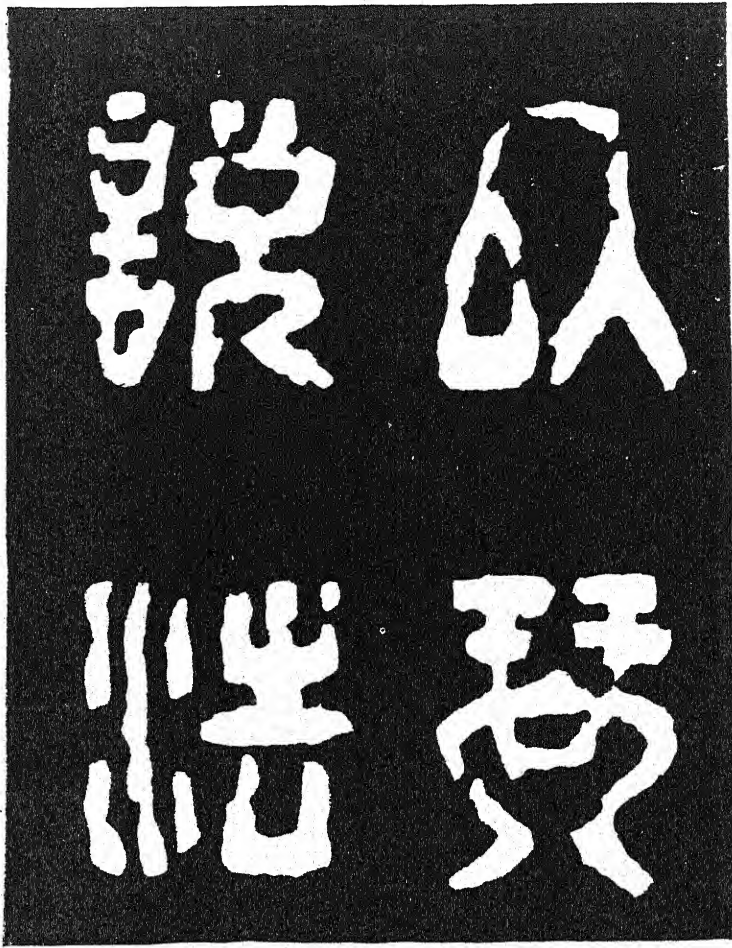 以琴
說法